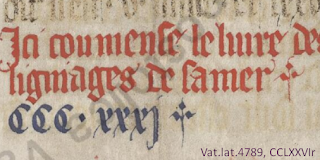 Ici coumense le liure des
lignages de samer
CCC · xxxj
Vat.lat.4789, CCLXXVIr